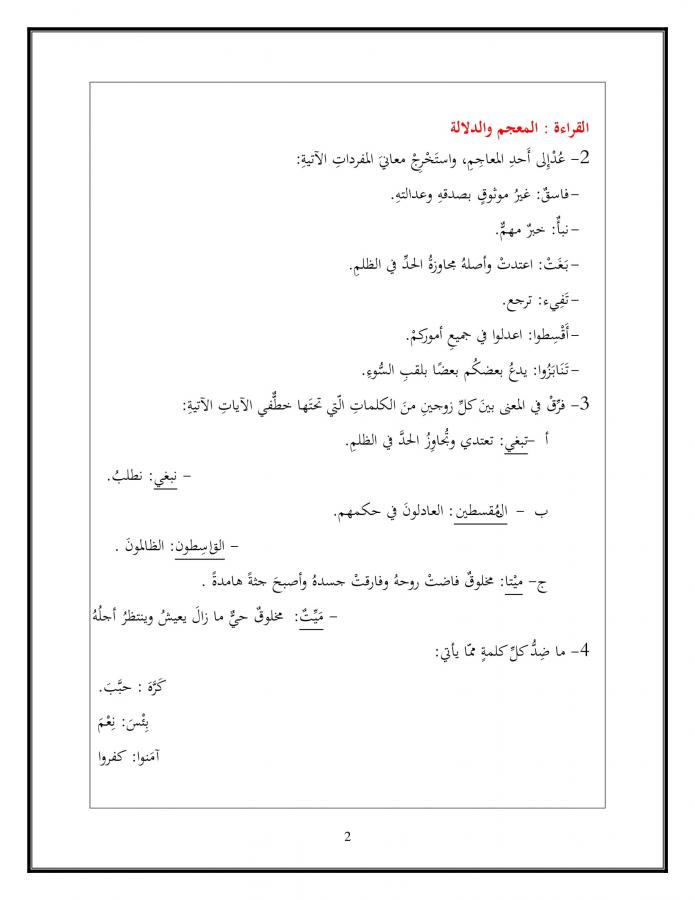 القراءة : المعجم والدلالة
2- عُدْإلى أَحدِ المعاجِمِ، واستَخْرِجْ معانيَ المفرداتِ الآتيةِ:
-فاسقٌ: غيرُ موثوقٍ بصدقهِ وعدالتهِ.
-نبأٌ: خبرٌ مهمٌّ.
-بَغَتْ: اعتدتْ وأصلهُ مجاوزةُ الحدِّ في الظلمِ.
-تَفِيء: ترجع.
-أَقْسِطوا: اعدلوا في جميعِ أموركمْ.
-تَنَابَزُوا: يدعُ بعضكُم بعضًا بلقبِ السُّوءِ.
3- فرِّقْ في المعنى بينَ كلِّ زوجينِ منَ الكلماتِ الّتي تحتَها خطٌّفي الآياتِ الآتيةِ:
أ -تبغي: تعتدي وتُجاوِزُ الحدَّ في الظلمِ.
- نبغي: نطلبُ.
ب - المُقسطين: العادلونَ في حكمهم.
- القاسِطون: الظالمونَ .
ج- ميْتا: مخلوقٌ فاضتْ روحهُ وفارقتْ جسدهُ وأصبحَ جثةً هامدةً .
- مَيِّتٌ: مخلوقٌ حيٌّ ما زالَ يعيشُ وينتظرُ أجلُهُ
4- ما ضِدُّ كلِّ كلمةٍ ممّا يأتي:
كَرَّهَ : حبَّبَ.
بِئْسَ: نِعْمَ
آمَنوا: كفروا
2